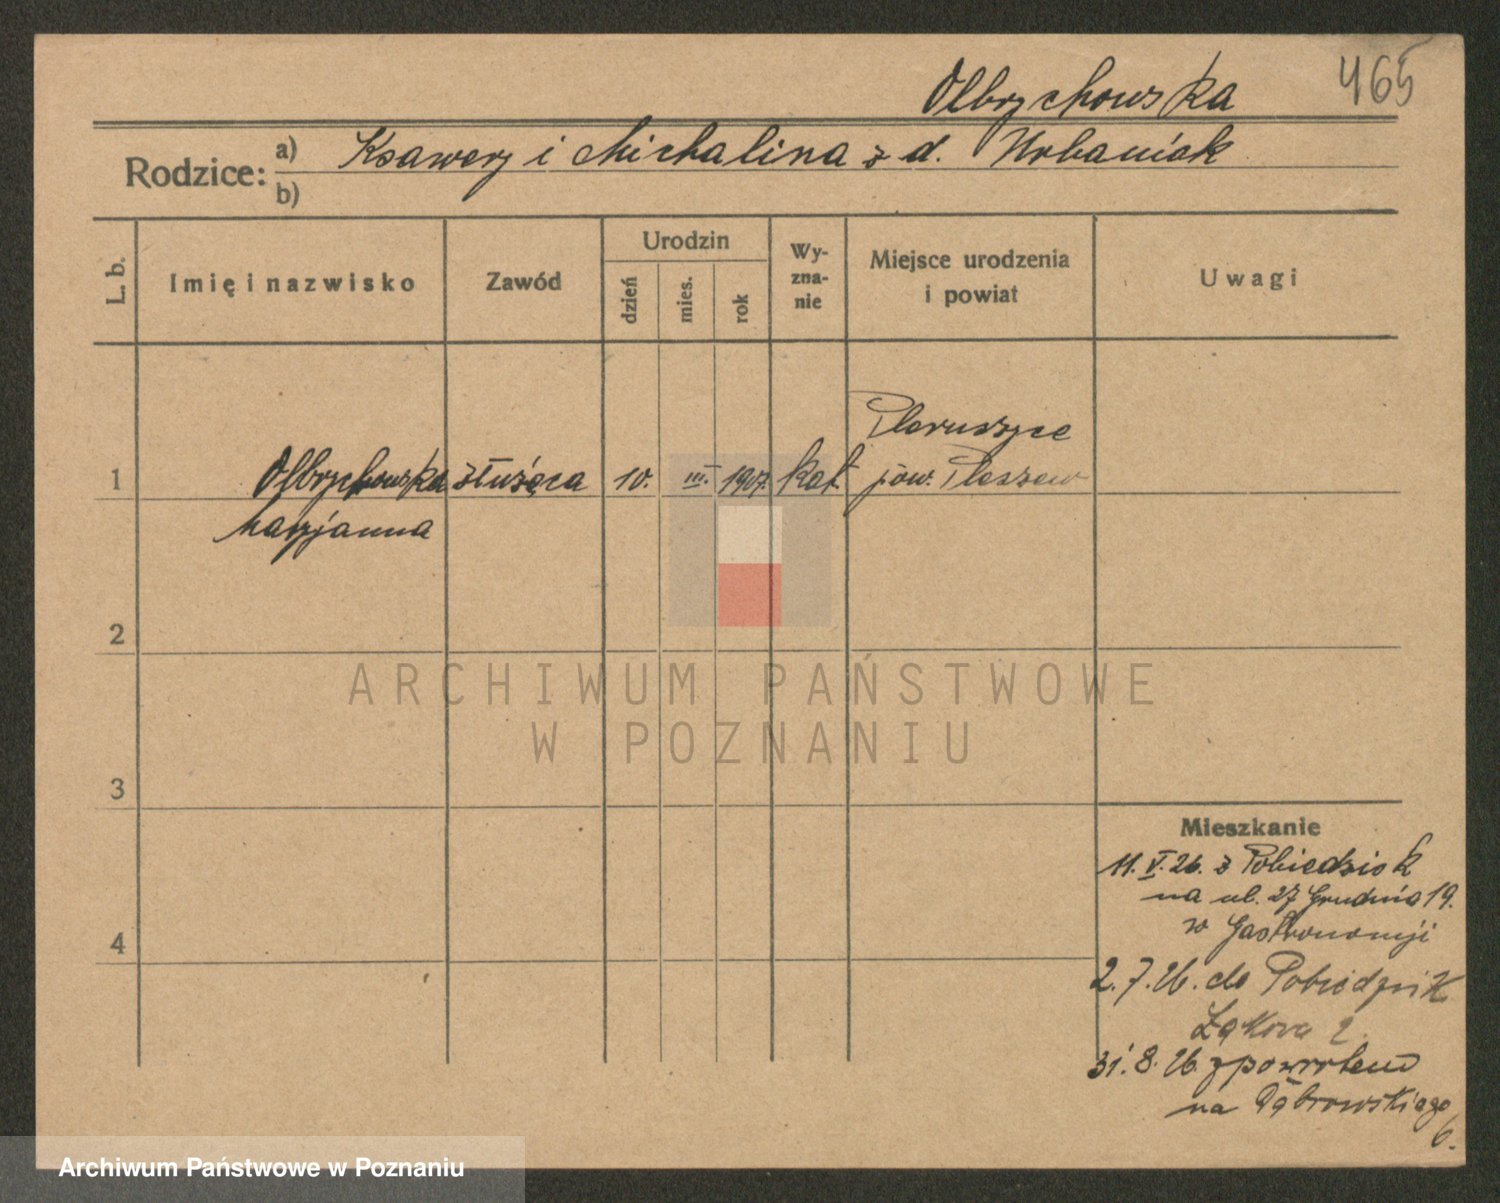 465
Olbrychowska
Rodzice: a) Ksawery i Michalina z d. Urbaniak
b)
L. b.
Imię i nazwisko
Zawód
Urodzin
dzień
mies.
rok
Wy-
zna-
nie
Miejsce urodzenia
i powiat
Uwagi
1
Olbrychowska
Marjanna
służąca
10.
III.
1907.
kat.
pow. Pleszew
2
3
4
Mieszkanie
11. V. 26. z Pobiedzisk
na ul. 27 Grudnia 19.
w Gastronomji
2. 7. 26. do Pobiedzisk
Łąkova 2
31. 8. 26. zpowrotem
na Dąbrowskiego
6.
ARCHIWUM PAŃSTWOWE
W POZNANIU
Archiwum Państwowe w Poznaniu